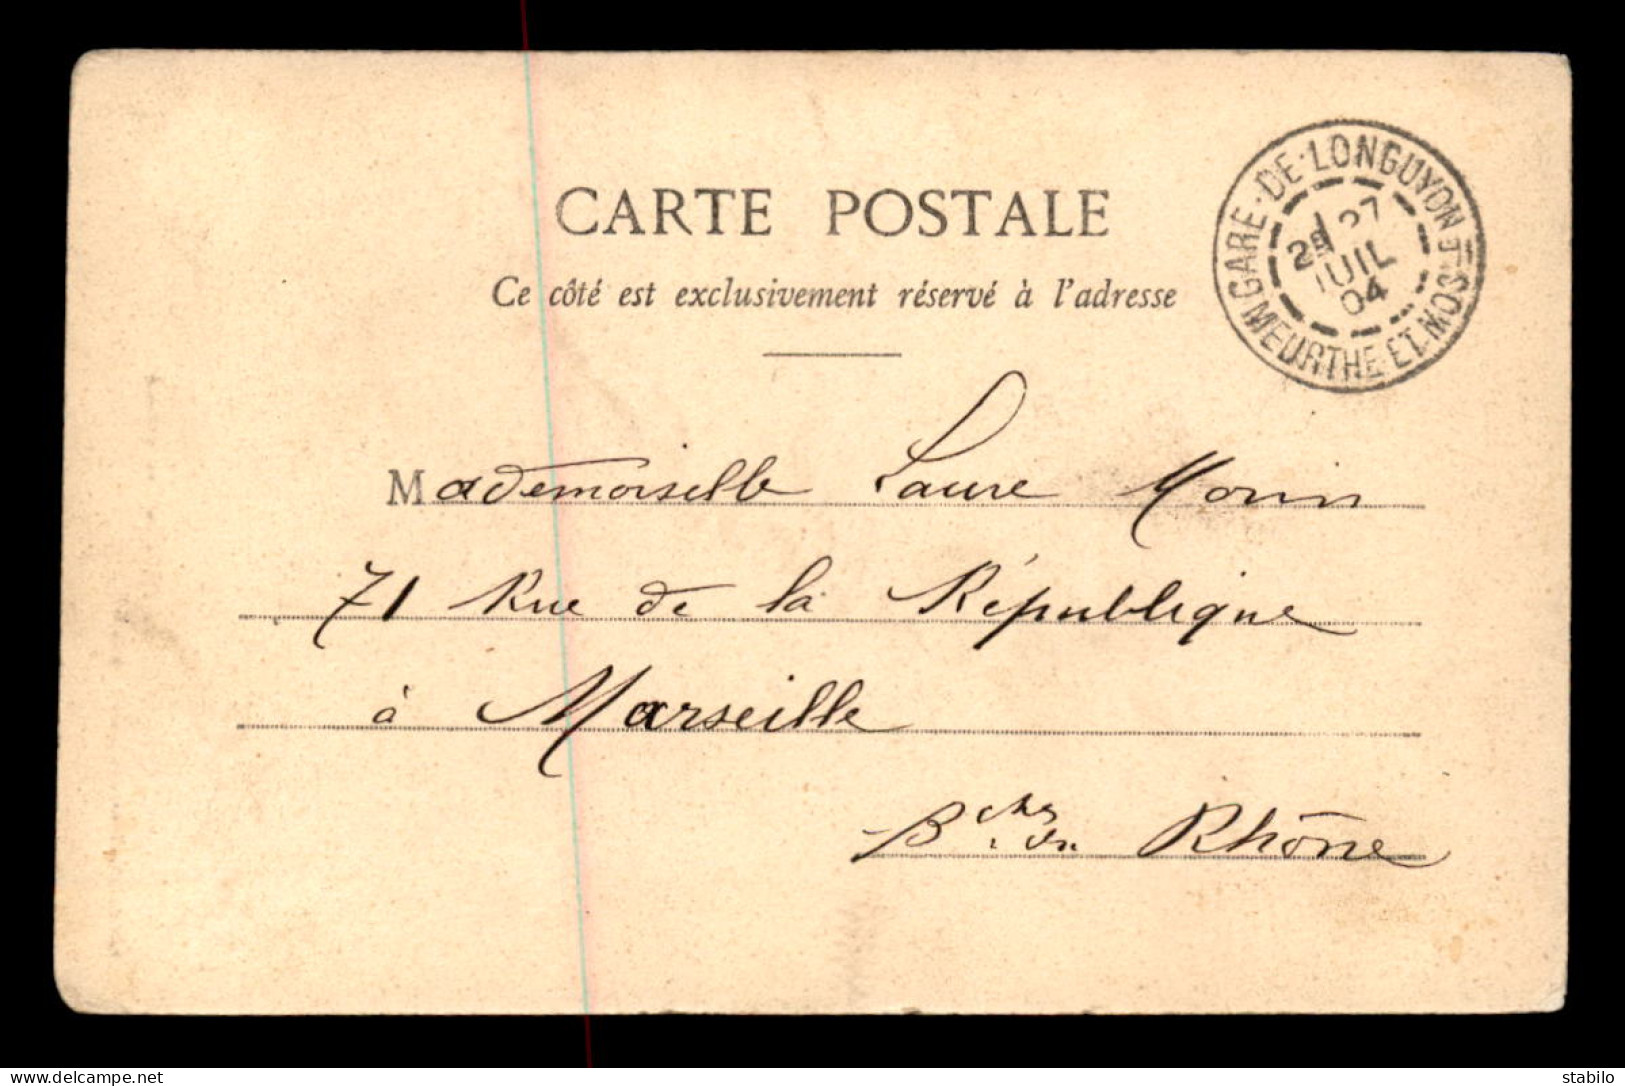 CARTE POSTALE
Ce côté est exclusivement réservé à l'adresse
GARE · DE · LONGUYON
JUIL
04
MEURTHE · ET · MOSELLE
Mademoiselle Laure Morin
71 Rue de la République
à Marseille
B.ches du Rhône
www.delcampe.net
stabilo